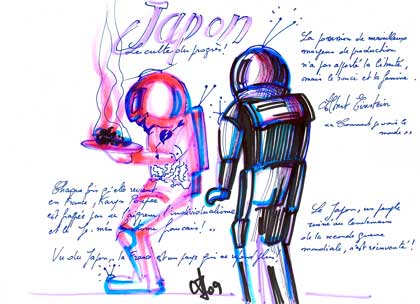 Japon
Le culte du progrès!
La possession de merveilleux
moyens de production
n'a pas apporté la liberté,
mais le souci et la famine
Albert Einstein
Comment je vois le
monde
Chaque fois qu'elle revient
en France, Karyn Poupée
est frappée par l'individualisme
et le
Vu du Japon, la France est un pays qui
Le Japon, un peuple
ruiné au lendemain
de la seconde guerre
mondiale, s'est réinventé!
09